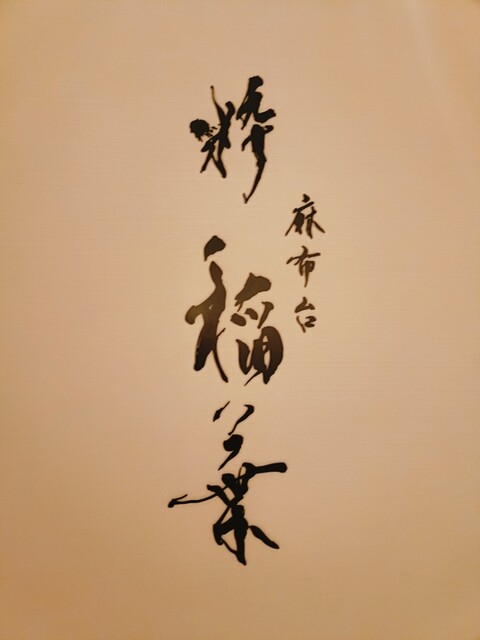 麻布台
粋稲葉